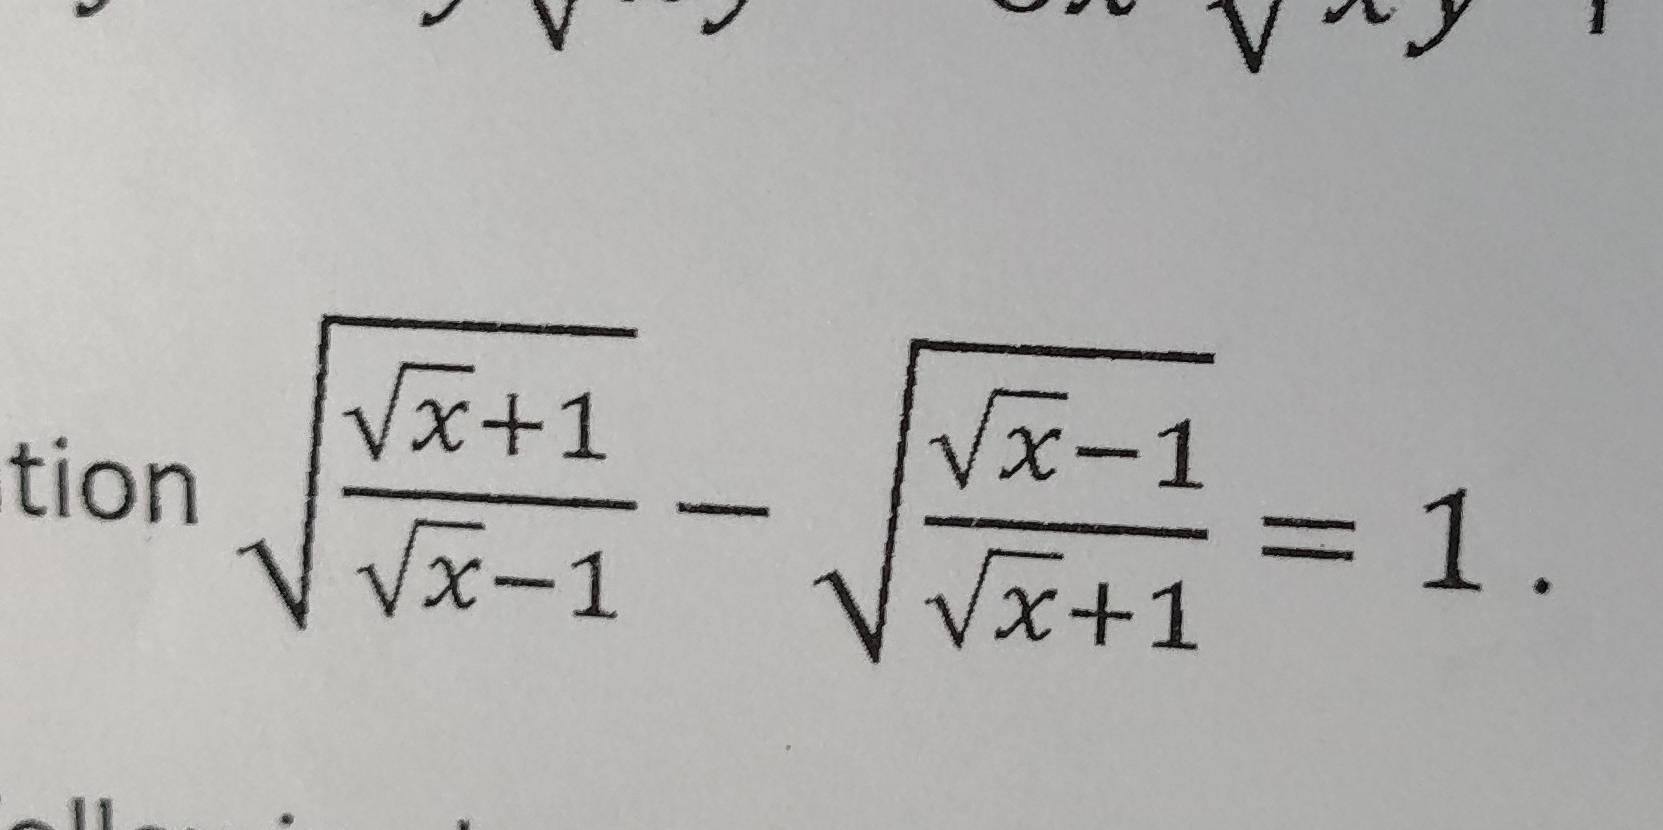 tion √((√x+1)/(√x−1)) − √((√x−1)/(√x+1)) = 1 .